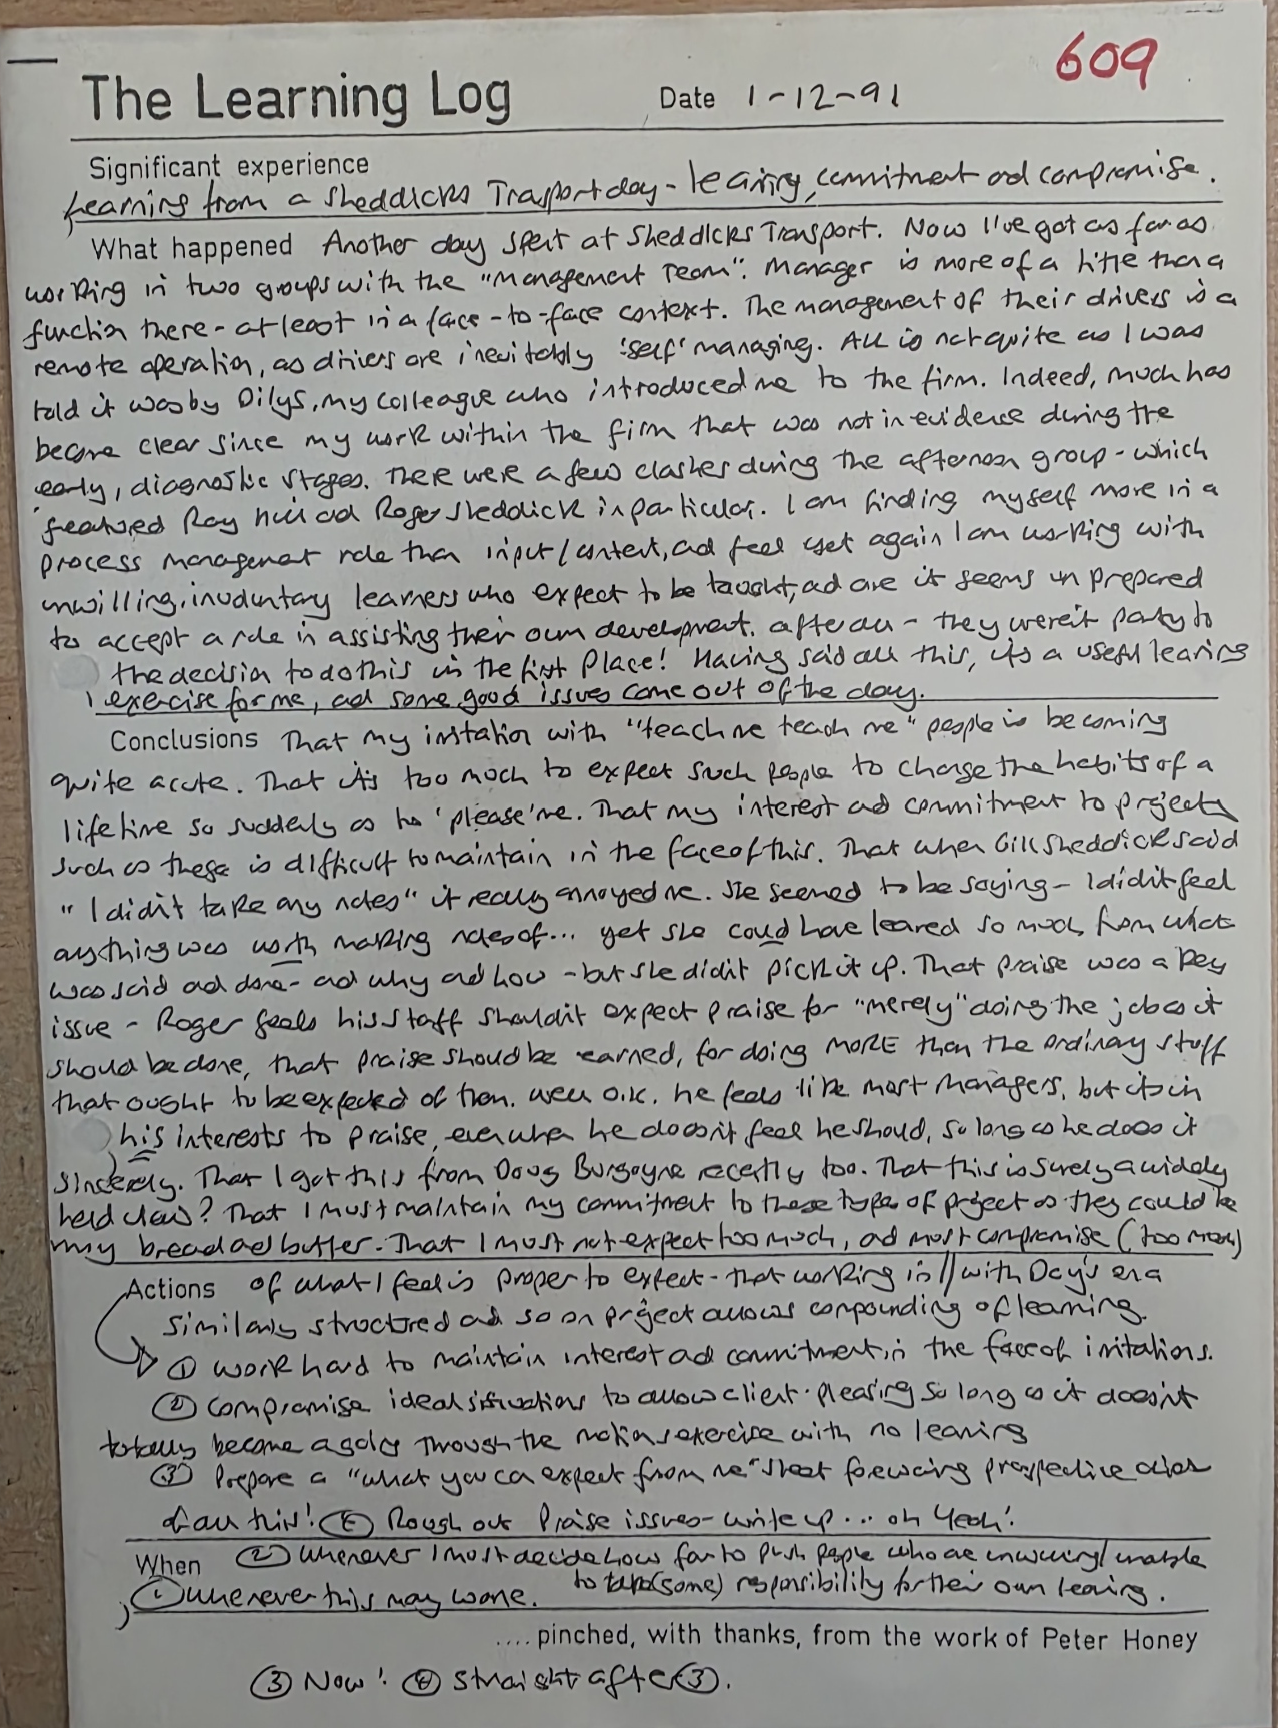 609
The Learning Log Date 1-12-91
Significant experience
Learning from a Sheddicks Transport day - learning, commitment and compromise.
What happened Another day spent at Sheddicks Transport. Now I've got as far as
working in two groups with the "Management Team". Manager is more of a title than a
function there - at least in a face-to-face context. The management of their drivers is a
remote operation, as drivers are inevitably 'self' managing. All is not quite as I was
told it was by Dilys, my colleague who introduced me to the firm. Indeed, much has
become clear since my work within the firm that was not in evidence during the
early, diagnostic stages. There were a few clashes during the afternoon group - which
featured Ray Hill and Roger Sheddick in particular. I am finding myself more in a
process management role than input/content, and feel yet again I am working with
unwilling, involuntary learners who expect to be taught, and are it seems unprepared
to accept a role in assisting their own development. After all - they weren't party to
the decision to do this in the first place! Having said all this, its a useful learning
exercise for me, and some good issues came out of the day.
Conclusions That my irritation with "teach me teach me" people is becoming
quite acute. That it's too much to expect such people to change the habits of a
lifetime so suddenly as to 'please' me. That my interest and commitment to projects
such as these is difficult to maintain in the face of this. That when Gill Sheddick said
"I didn't take any notes" it really annoyed me. She seemed to be saying - I didn't feel
anything was worth making notes of... yet she could have learned so much from what
was said and done - and why and how - but she didn't pick it up. That praise was a key
issue - Roger feels his staff shouldn't expect praise for "merely" doing the job as it
should be done, that praise should be earned, for doing MORE than the ordinary stuff
that ought to be expected of them. Well O.K. he feels like most managers, but its in
his interests to praise, even when he doesn't feel he should, so long as he does it
sincerely. That I got this from Doug Burgoyne recently too. That this is surely a widely
held view? That I must maintain my commitment to these types of project as they could be
my bread and butter. That I must not expect too much, and must compromise (too much)
Actions of what I feel is proper to expect - that working in // with Day's on a
similarly structured and so on project allows compounding of learning.
① Work hard to maintain interest and commitment, in the face of irritations.
② Compromise ideal situations to allow client-pleasing so long as it doesn't
totally become a going through the motions exercise with no learning
③ Prepare a "what you can expect from me" sheet forewarning prospective clients
of all this! ④ Rough out Praise issues - write up... oh Yeah!
When ② Whenever I must decide how far to push people who are unwilling/unable
to take (some) responsibility for their own learning.
① Whenever this may wane.
.... pinched, with thanks, from the work of Peter Honey
③ Now! ④ Straight after ③.